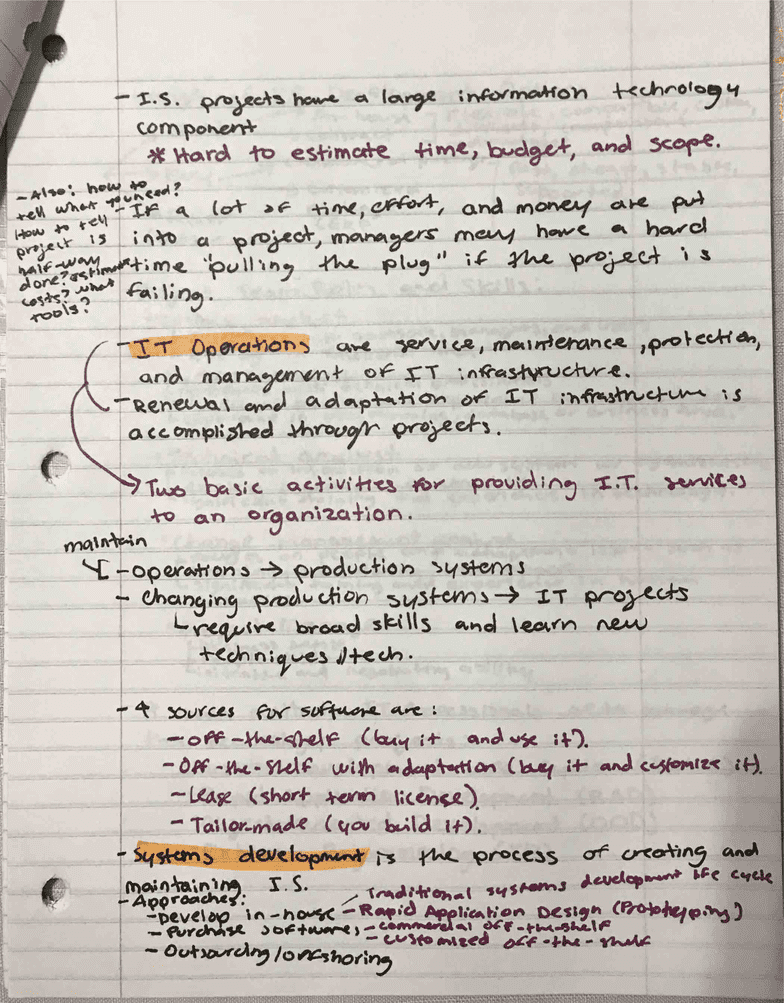 - I.S. projects have a large information technology
component
* Hard to estimate time, budget, and scope.
- Also: how to
tell what you need?
How to tell
project is
half-way
done? estimate
costs? what
tools?
- If a lot of time, effort, and money are put
into a project, managers may have a hard
time "pulling the plug" if the project is
failing.
- IT Operations are service, maintenance, protection,
and management of IT infrastructure.
- Renewal and adaptation of IT infrastructure is
accomplished through projects.
Two basic activities for providing I.T. services
to an organization.
maintain
- operations → production systems
- changing production systems → IT projects
require broad skills and learn new
techniques/tech.
- 4 sources for software are:
- off-the-shelf (buy it and use it).
- Off-the-shelf with adaptation (buy it and customize it).
- Lease (short term license).
- Tailor-made (you build it).
- Systems development is the process of creating and
maintaining I.S.
- Approaches:
- Develop in-house - Traditional systems development life cycle
- Rapid Application Design (Prototyping)
- Purchase software - commercial off-the-shelf
- customized off-the-shelf
- Outsourcing/offshoring